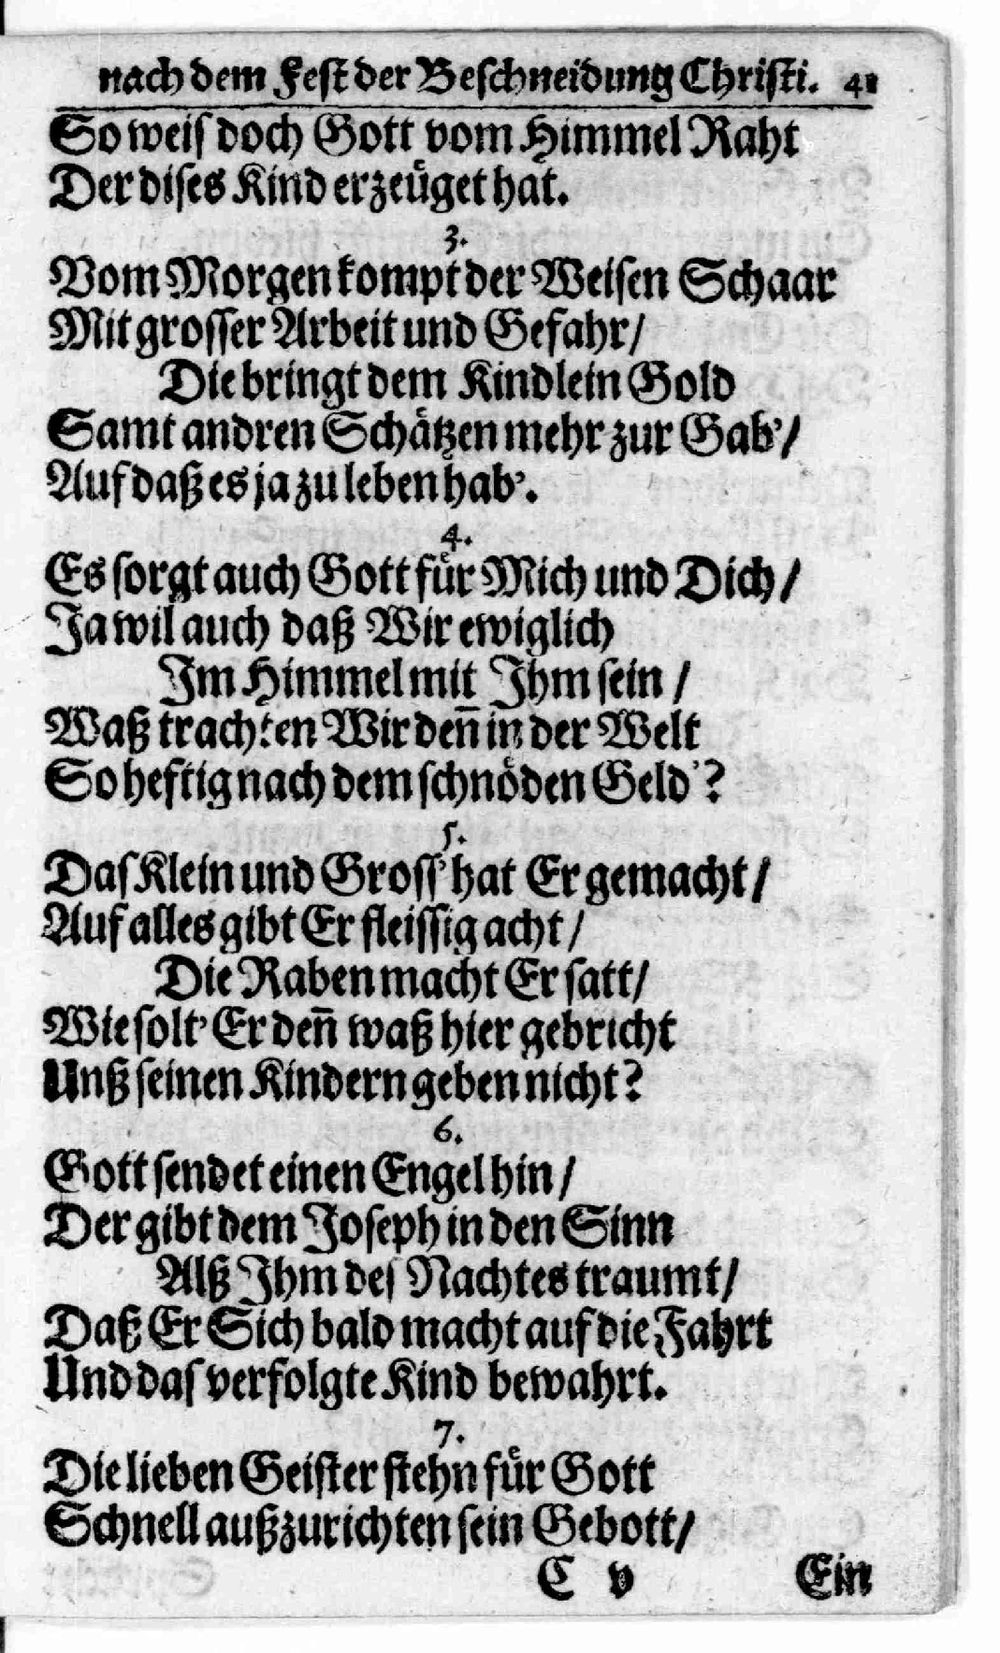 nach dem Fest der Beschneidung Christi. 41
So weiſ doch Gott vom Himmel Raht
Der diſes Kind erzeuͤget hat.
3.
Vom Morgen kompt der Weiſen Schaar
Mit groſſer Arbeit und Gefahr/
Die bringt dem Kindlein Gold
Samt andren Schaͤtzen mehr zur Gab'/
Auf daß es ja zu leben hab'.
4.
Es ſorgt auch Gott fuͤr Mich und Dich/
Ja wil auch daß Wir ewiglich
Im Himmel mit Ihm ſein/
Waß trachten Wir deñ in der Welt
So heftig nach dem ſchnoͤden Geld'?
5.
Daſ Klein und Groſſ' hat Er gemacht/
Auf alles gibt Er fleiſſig acht/
Die Raben macht Er ſatt/
Wie ſolt' Er deñ waß hier gebricht
Unß ſeinen Kindern geben nicht?
6.
Gott ſendet einen Engel hin/
Der gibt dem Joſeph in den Sinn
Alß Ihm deſ Nachtes traumt/
Daß Er Sich bald macht auf die Fahrt
Und daſ verfolgte Kind bewahrt.
7.
Die lieben Geiſter ſtehn fuͤr Gott
Schnell außzurichten ſein Gebott/
C v Ein